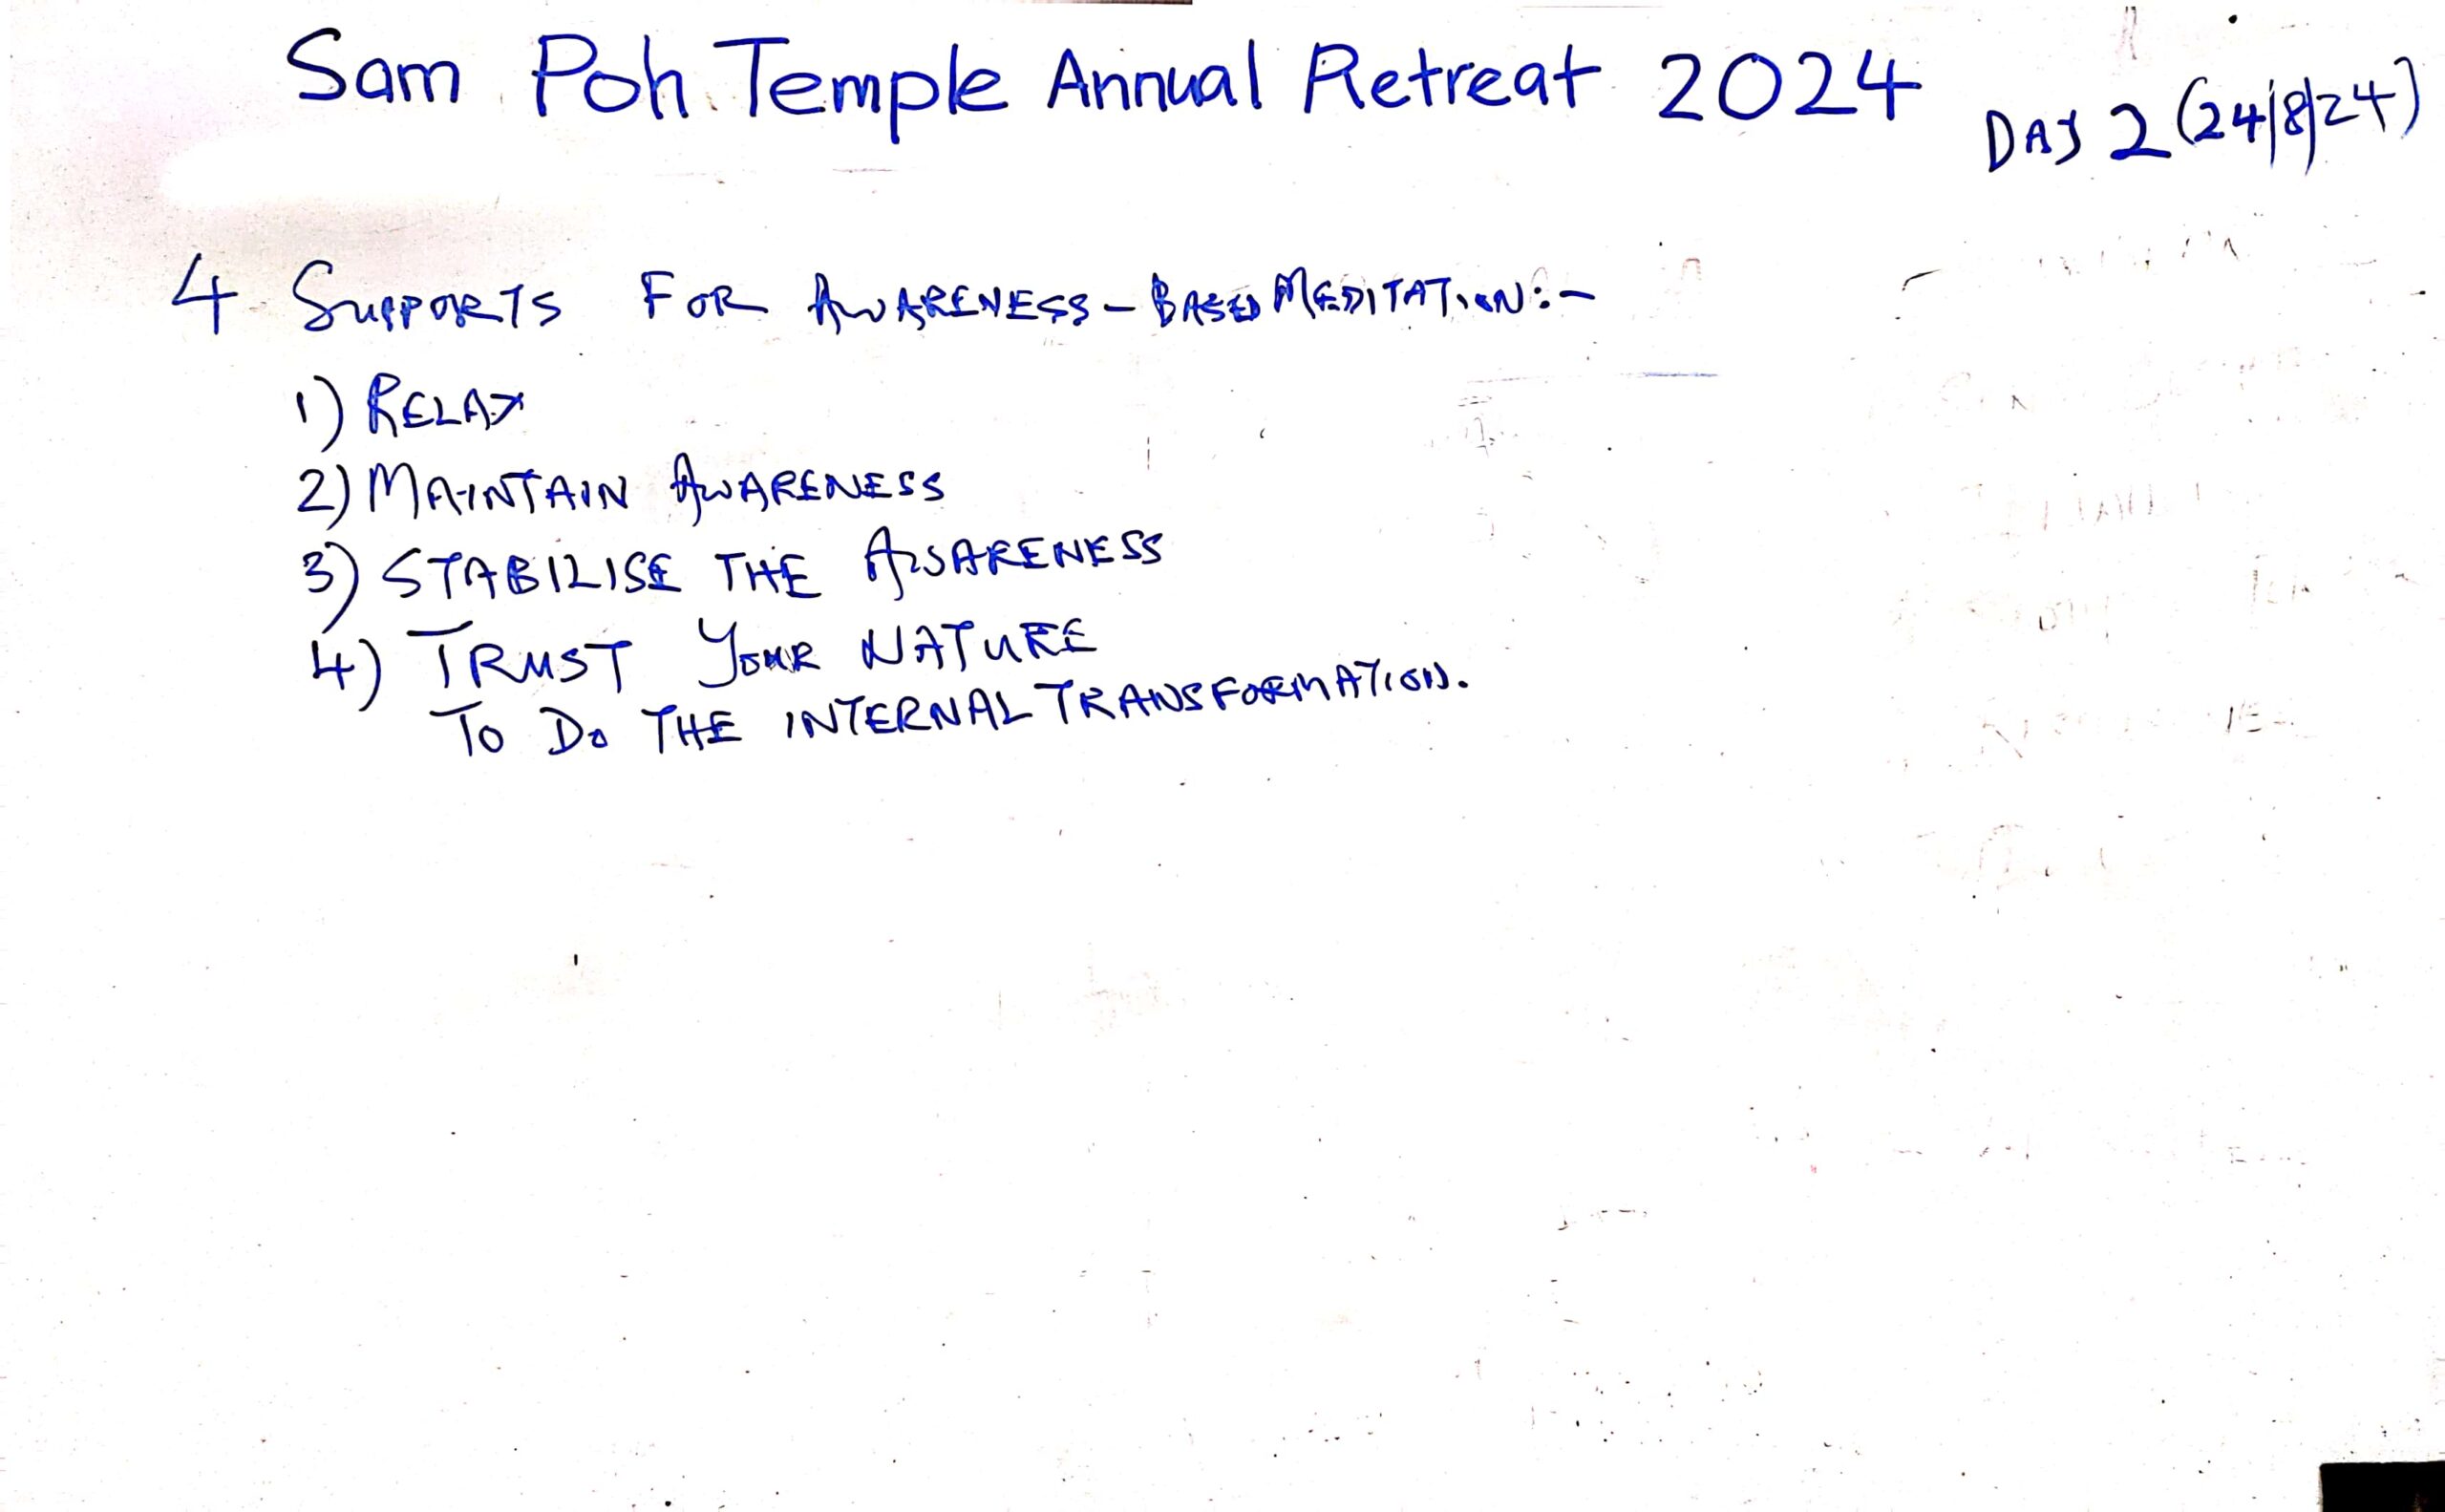 Sam Poh Temple Annual Retreat 2024 DAY 2 (24/8/24)
4 SUPPORTS FOR AWARENESS-BASED MEDITATION:-
1) RELAX
2) MAINTAIN AWARENESS
3) STABILISE THE AWARENESS
4) TRUST YOUR NATURE
TO DO THE INTERNAL TRANSFORMATION.